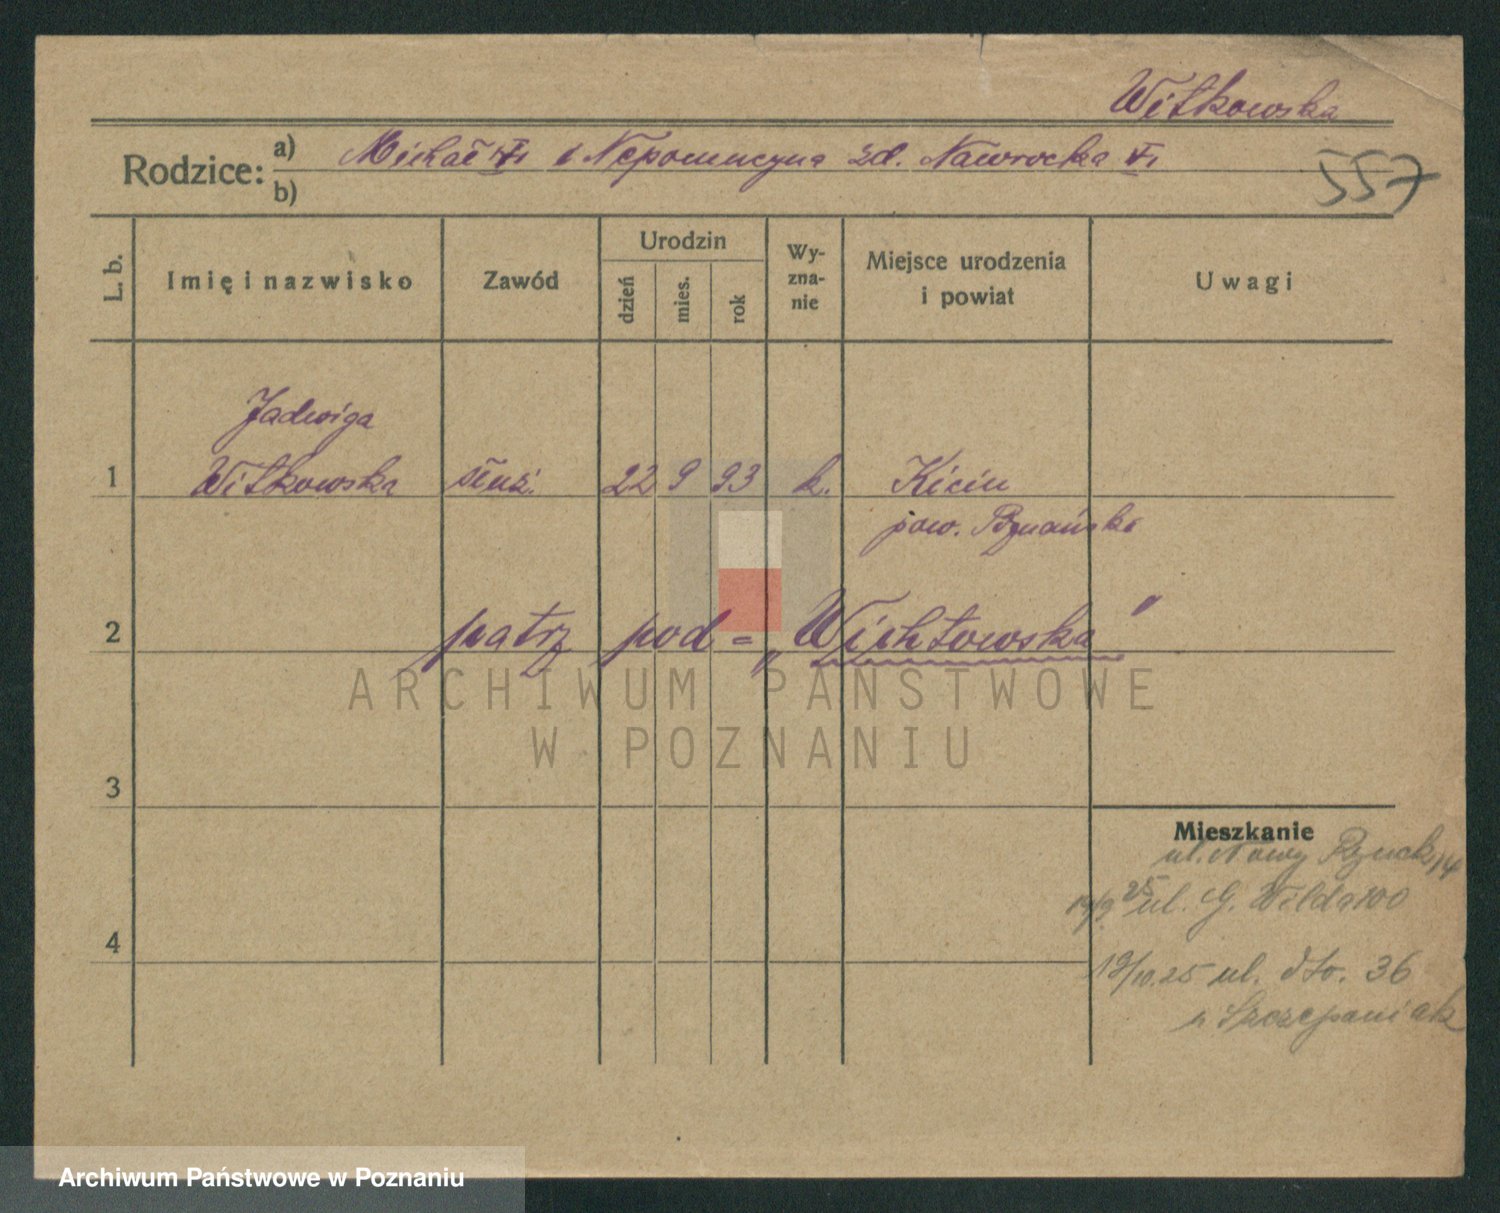 Witkowska
Rodzice:
a) Michał i Nepomucyna zd. Nawrocka
b)
557
L. b.
Imię i nazwisko
Zawód
Urodzin
dzień
mies.
rok
Wy-
zna-
nie
Miejsce urodzenia
i powiat
Uwagi
Jadwiga
1 Witkowska służ. 22 9 93 k. Kicin
pow. Pznański
2 patrz pod = „Wichtowska"
3
4
Mieszkanie
ul. Nowy Rynek 14
25 ul. G. Wilda 100
19/10.25 ul. dto. 36
Szczepaniak
ARCHIWUM PAŃSTWOWE
W POZNANIU
Archiwum Państwowe w Poznaniu